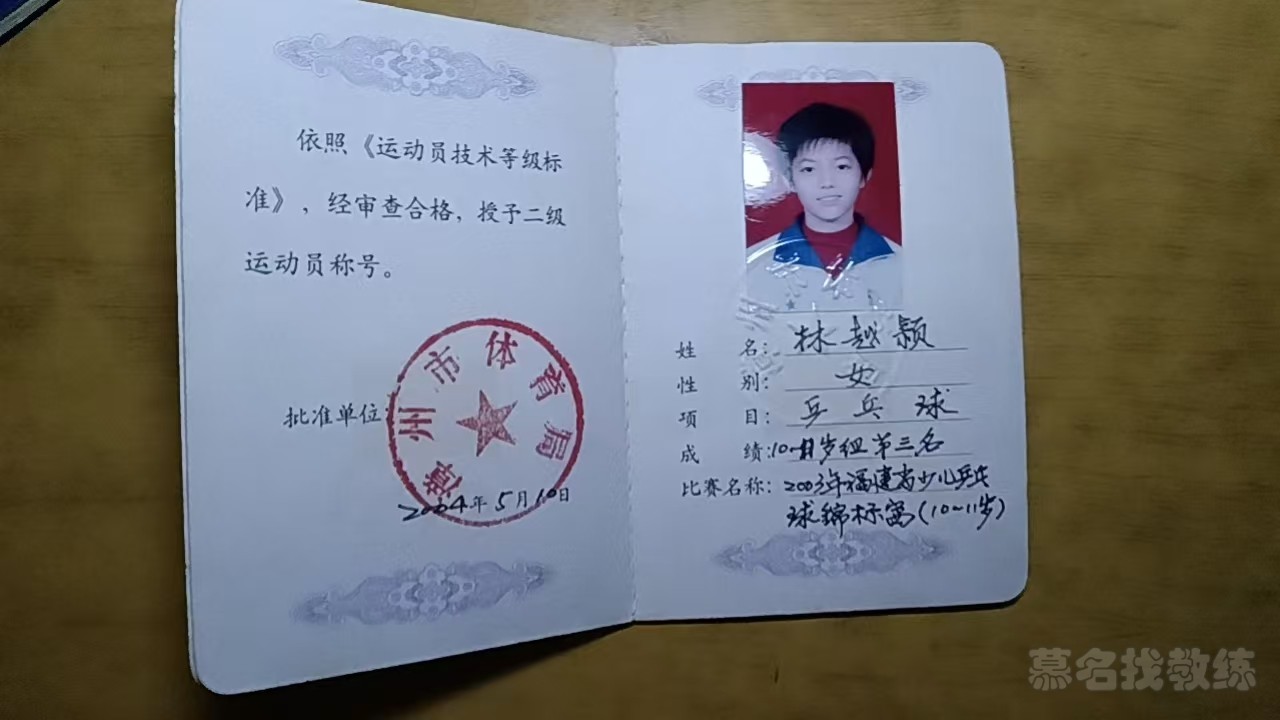 依照《运动员技术等级标
准》，经审查合格，授予二级
运动员称号。
批准单位:
漳州市体育局
2004年5月10日
姓 名: 林越颖
性 别: 女
项 目: 乒乓球
成 绩: 10-11岁组第三名
比赛名称: 2003年福建省少儿乒乓
球锦标赛(10~11岁)
慕名找教练